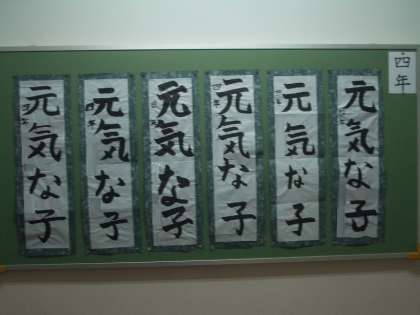 四年
元気な子
元気な子
元気な子
元気な子
元気な子
元気な子